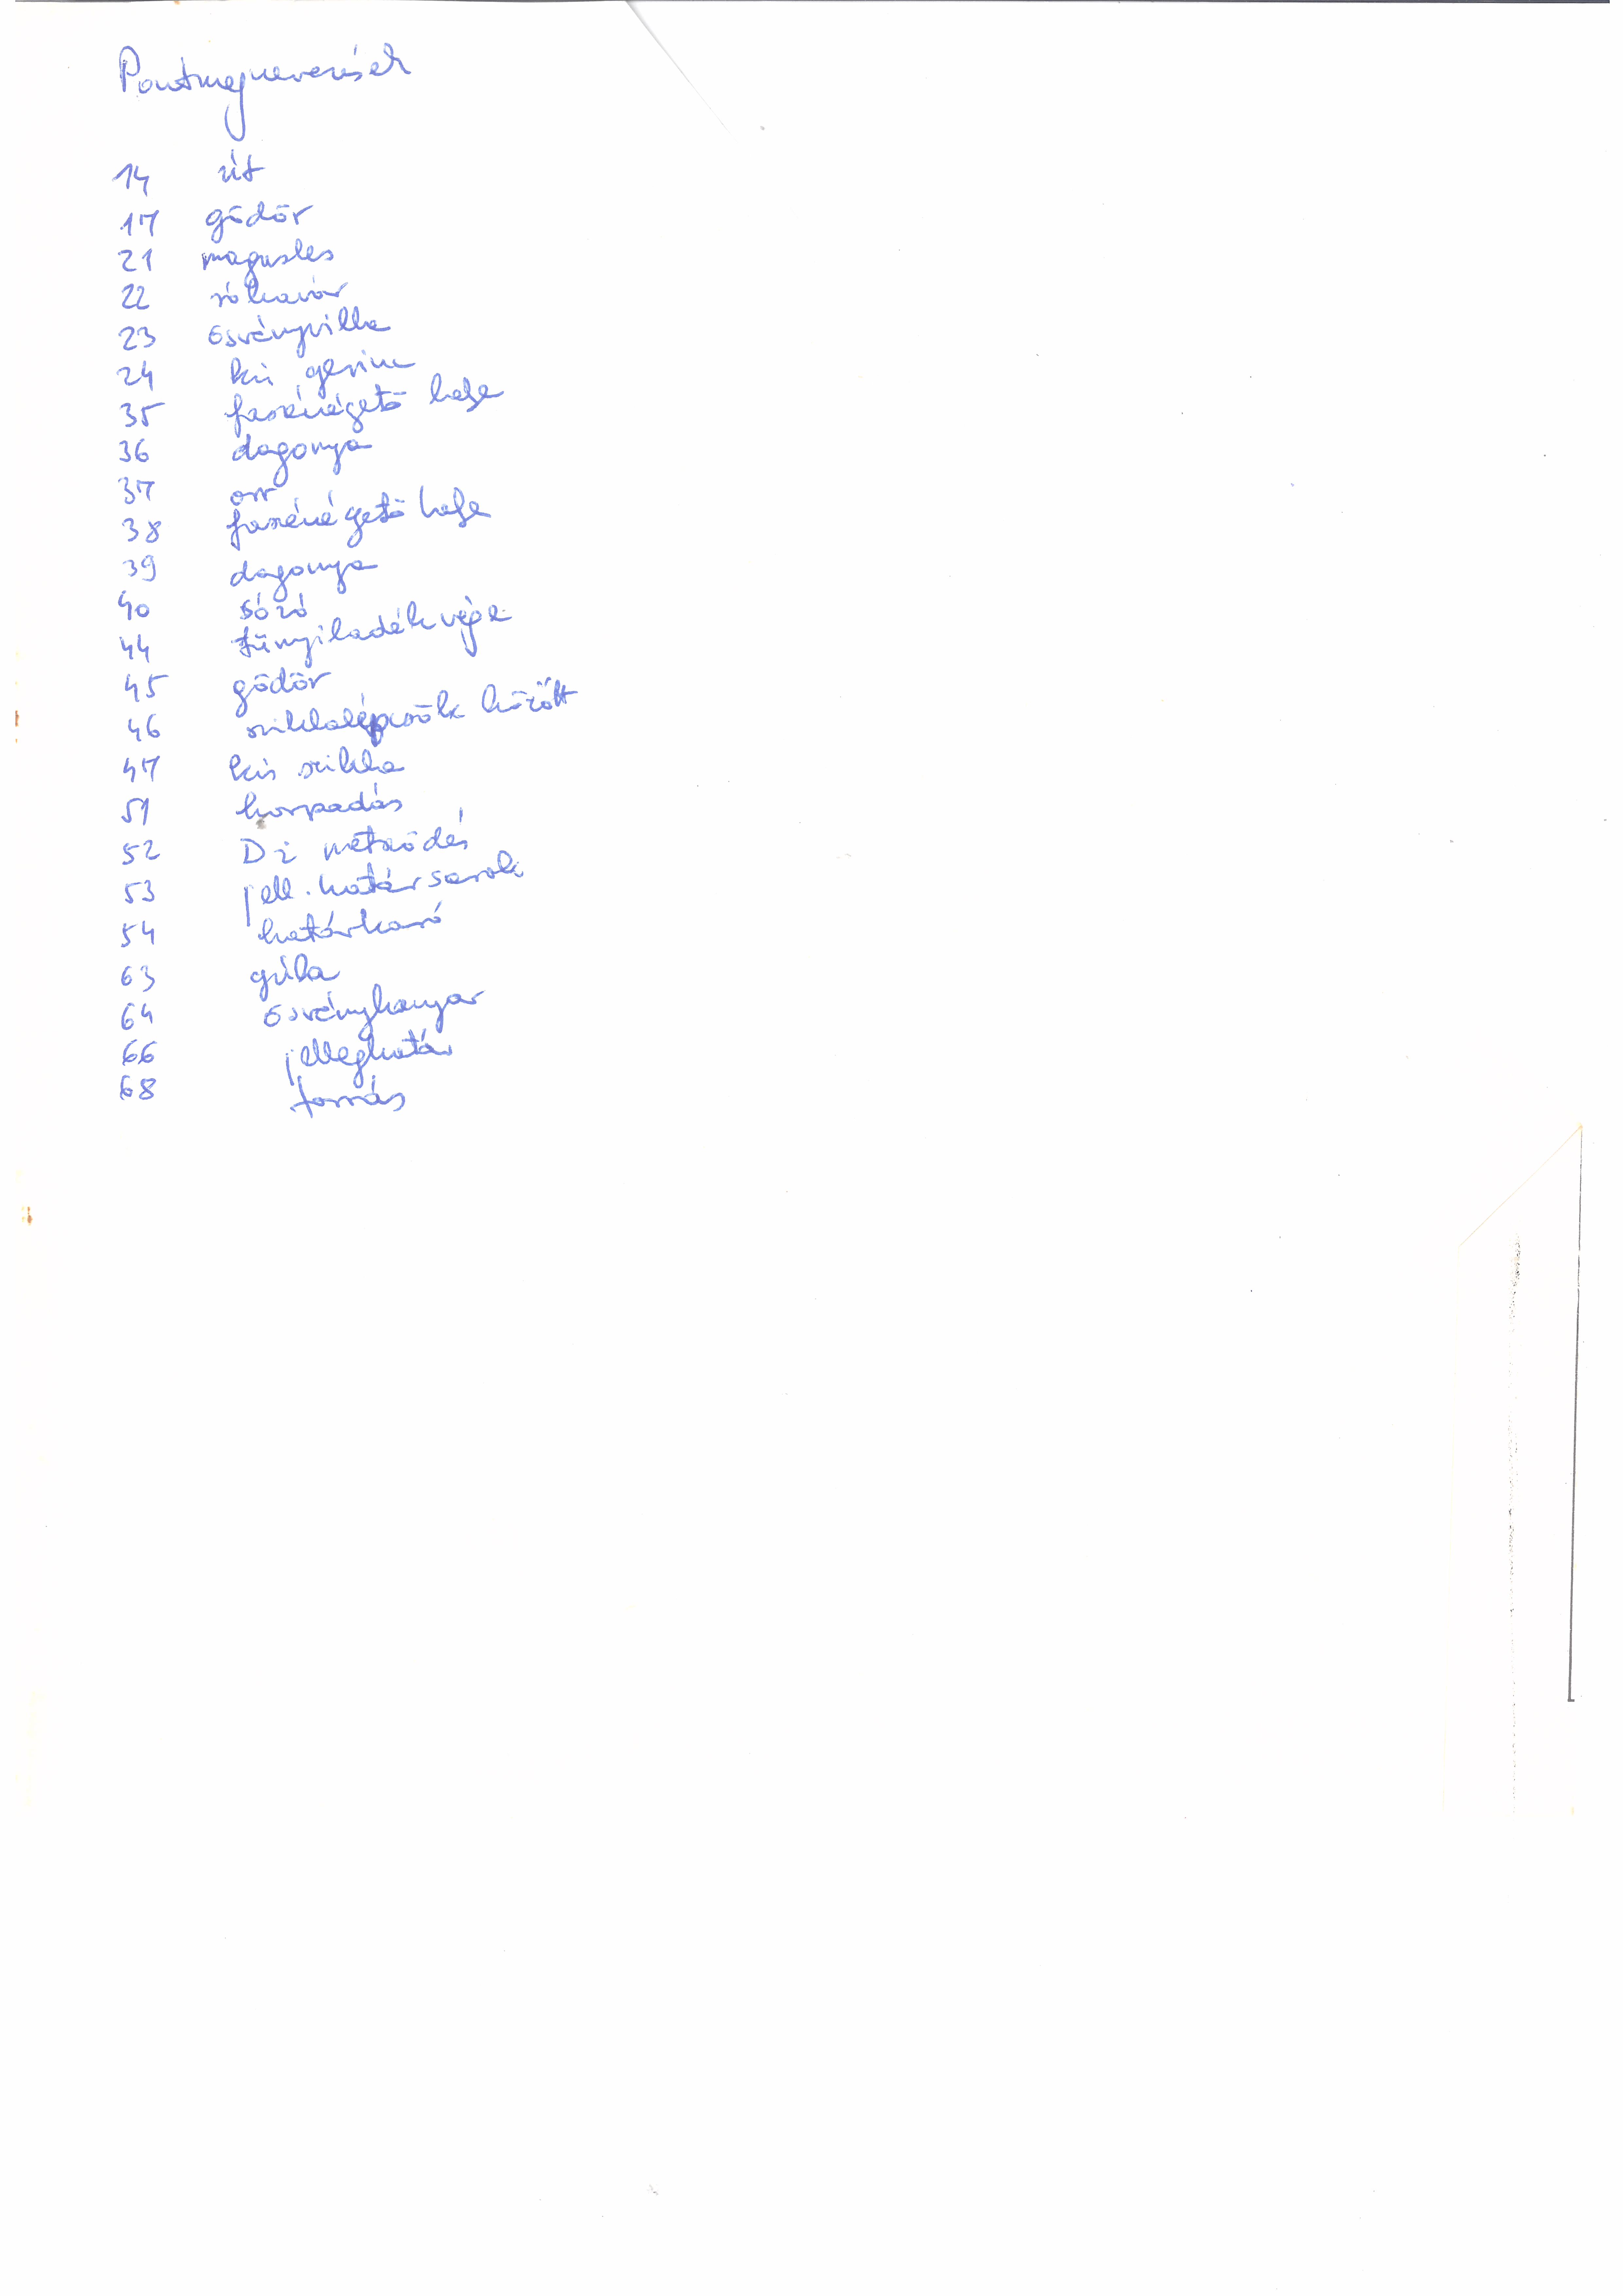 Pontmegnevezések
14 út
17 gödör
21 magasles
22 rókavár
23 ösvényvilla
24 kis gerinc
35 faszénégető helye
36 dagonya
37 orr
38 faszénégető helye
39 dagonya
40 sózó
44 tűnyiladék vége
45 gödör
46 sziklalépcsők között
47 kis szikla
51 horpadás
52 Di metsződés
53 jell. határsarok
54 határkaró
63 gúla
64 ösvénykanyar
66 jelleghatár
68 forrás